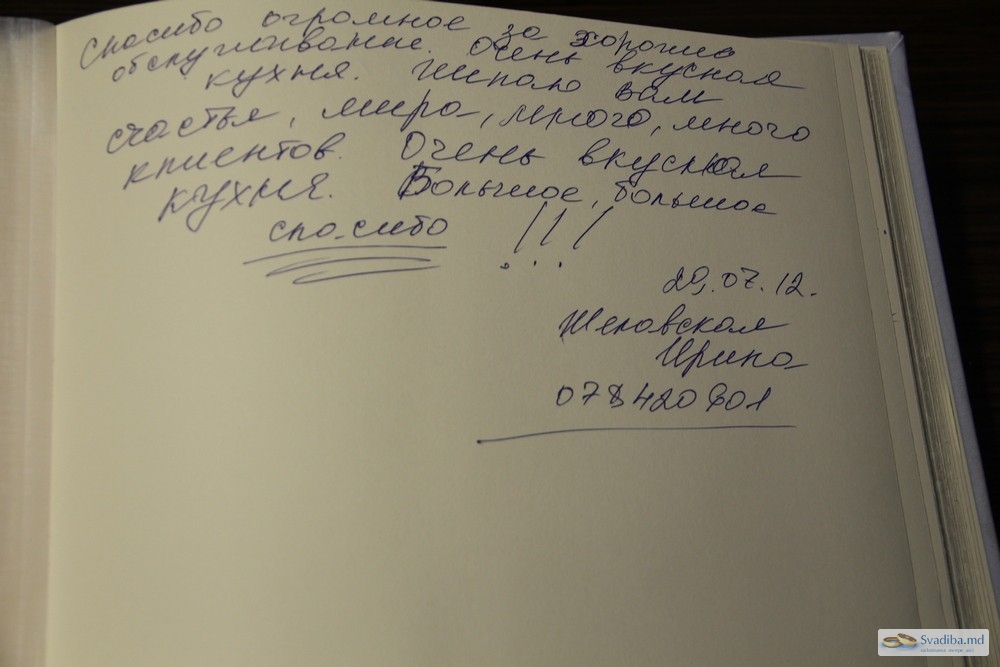 Спасибо огромное за хорошее
обслуживание. Очень вкусная
кухня. Желаю вам
счастья, мира, много, много
клиентов. Очень вкусная
кухня. Большое, большое
спасибо !!!
29.07.12.
Желовская
Ирина
078420901
Svadiba.md